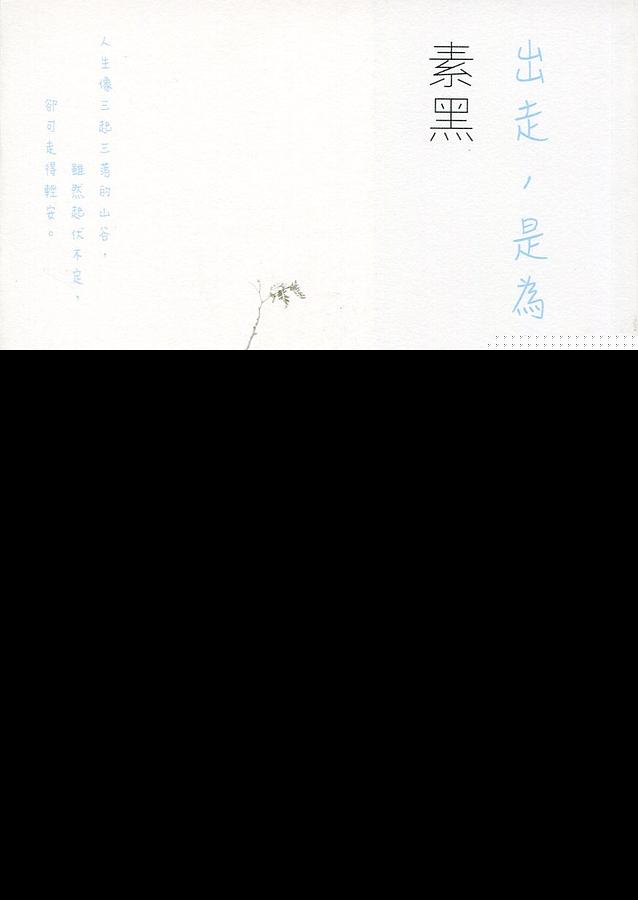 出走，是為
素黑
人生像三起三落的山谷，
雖然起伏不定，
卻可走得輕安。